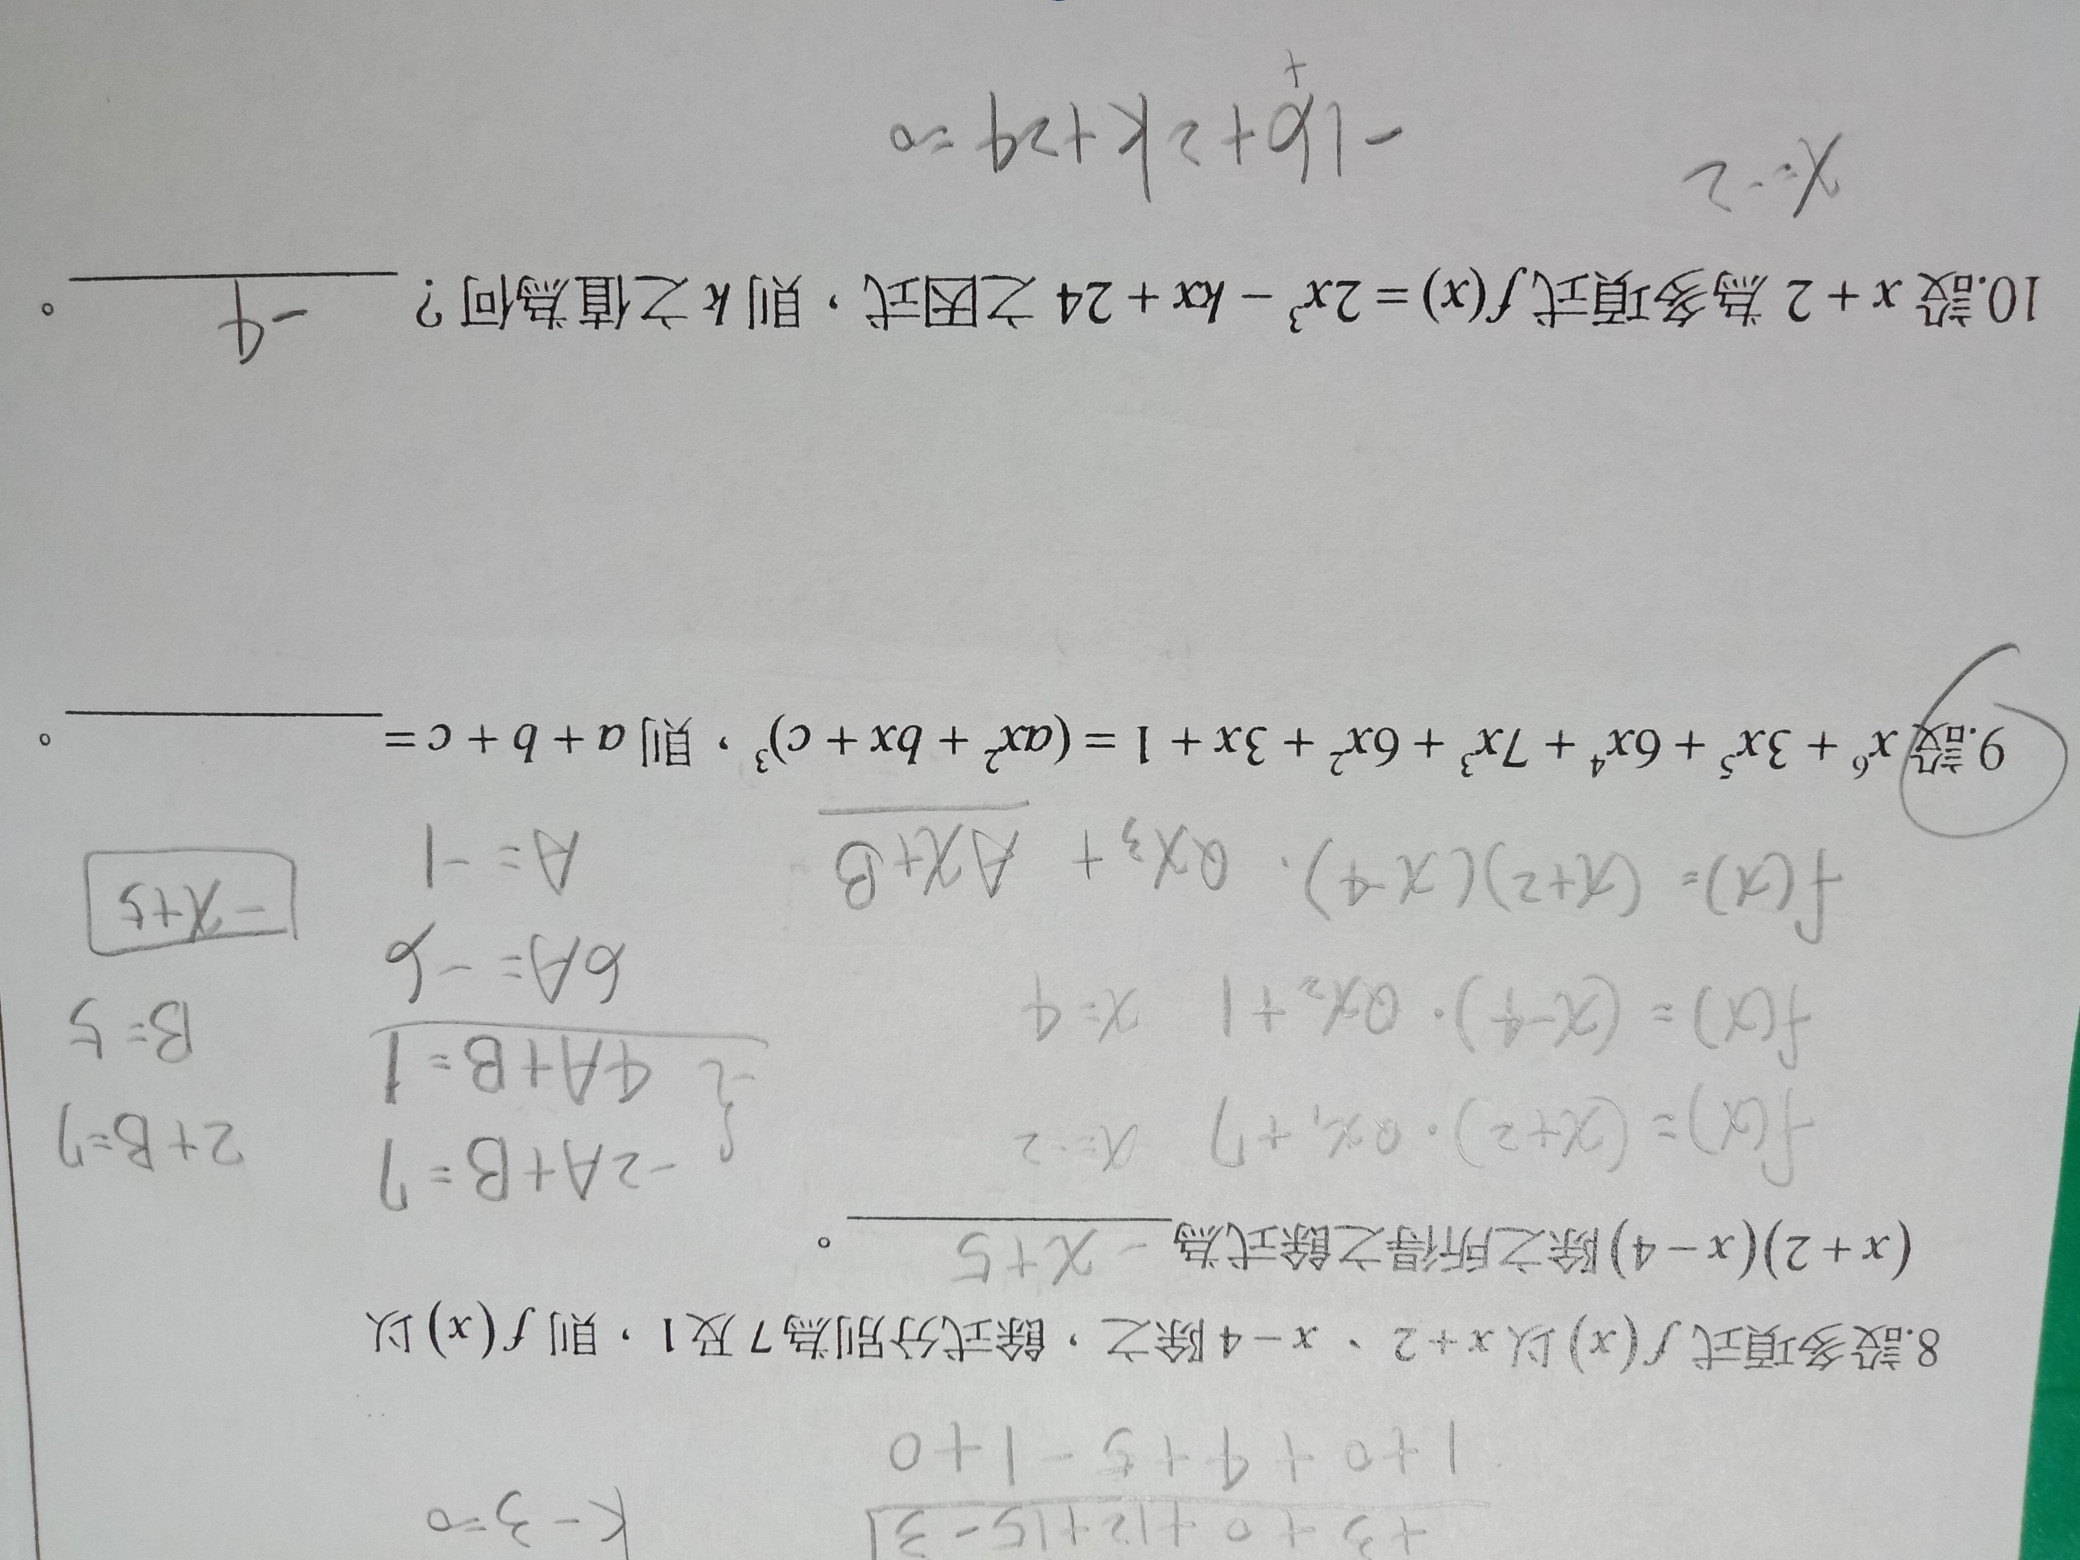 +3+0+12+15-3
k-3=0
1+0+4+5-1+0
8.設多項式 f(x) 以 x+2、x-4 除之,餘式分別為 7 及 1,則 f(x) 以
(x+2)(x-4) 除之所得之餘式為 -x+5 。
f(x)=(x+2)·Qx₁+7 x=-2
f(x)=(x-4)·Qx₂+1 x=4
f(x)=(x+2)(x-4)·Qx₃+Ax+B
-2A+B=7
-) 4A+B=1
6A=-6
A=-1
2+B=7
B=5
-x+5
9.設 x⁶+3x⁵+6x⁴+7x³+6x²+3x+1=(ax²+bx+c)³,則 a+b+c= 。
10.設 x+2 為多項式 f(x)=2x³-kx+24 之因式,則 k 之值為何? -4 。
x=-2
-16+2k+24=0
+